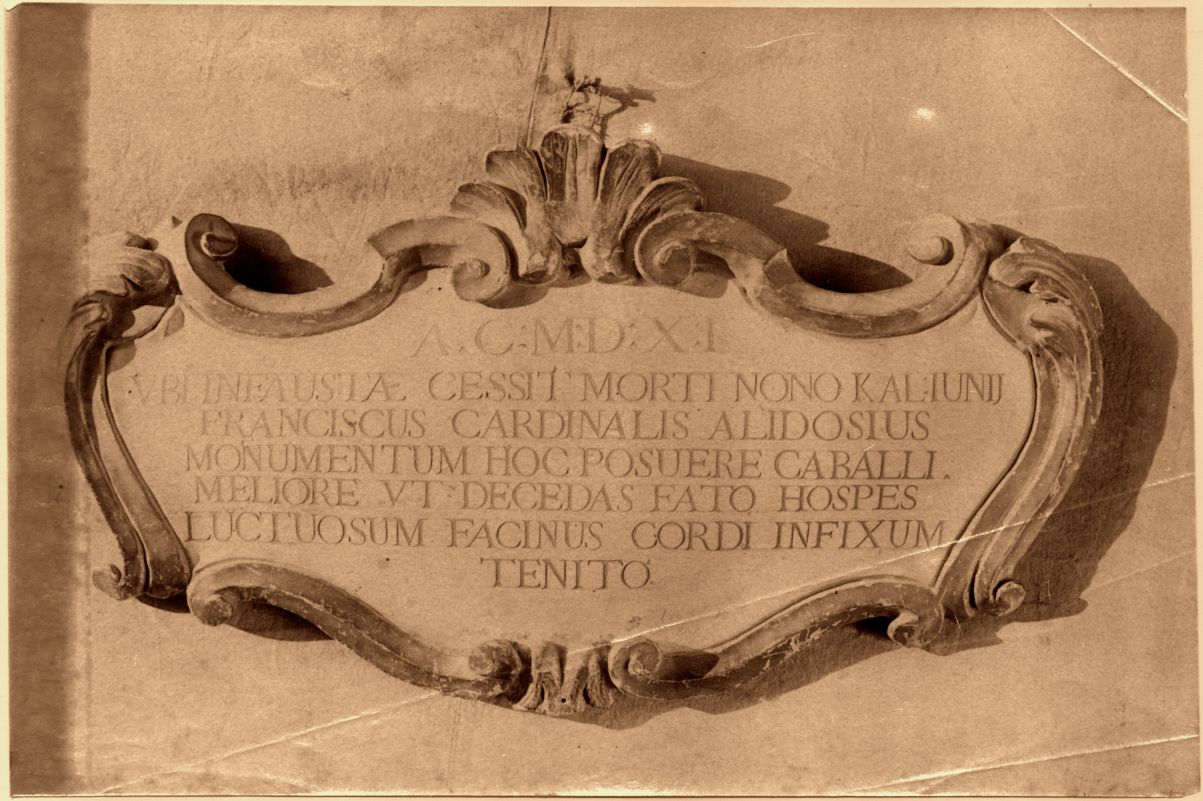 A.C:M:D:X.I
VBI INFAUSTÆ CESSIT MORTI NONO KAL:IUNIJ
FRANCISCUS CARDINALIS ALIDOSIUS
MONUMENTUM HOC POSUERE CABALLI.
MELIORE VT DECEDAS FATO HOSPES
LUCTUOSUM FACINUS CORDI INFIXUM
TENITO.